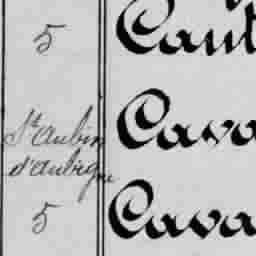 5 Caut
St aubin Cava
d'aubigne
5 Cava